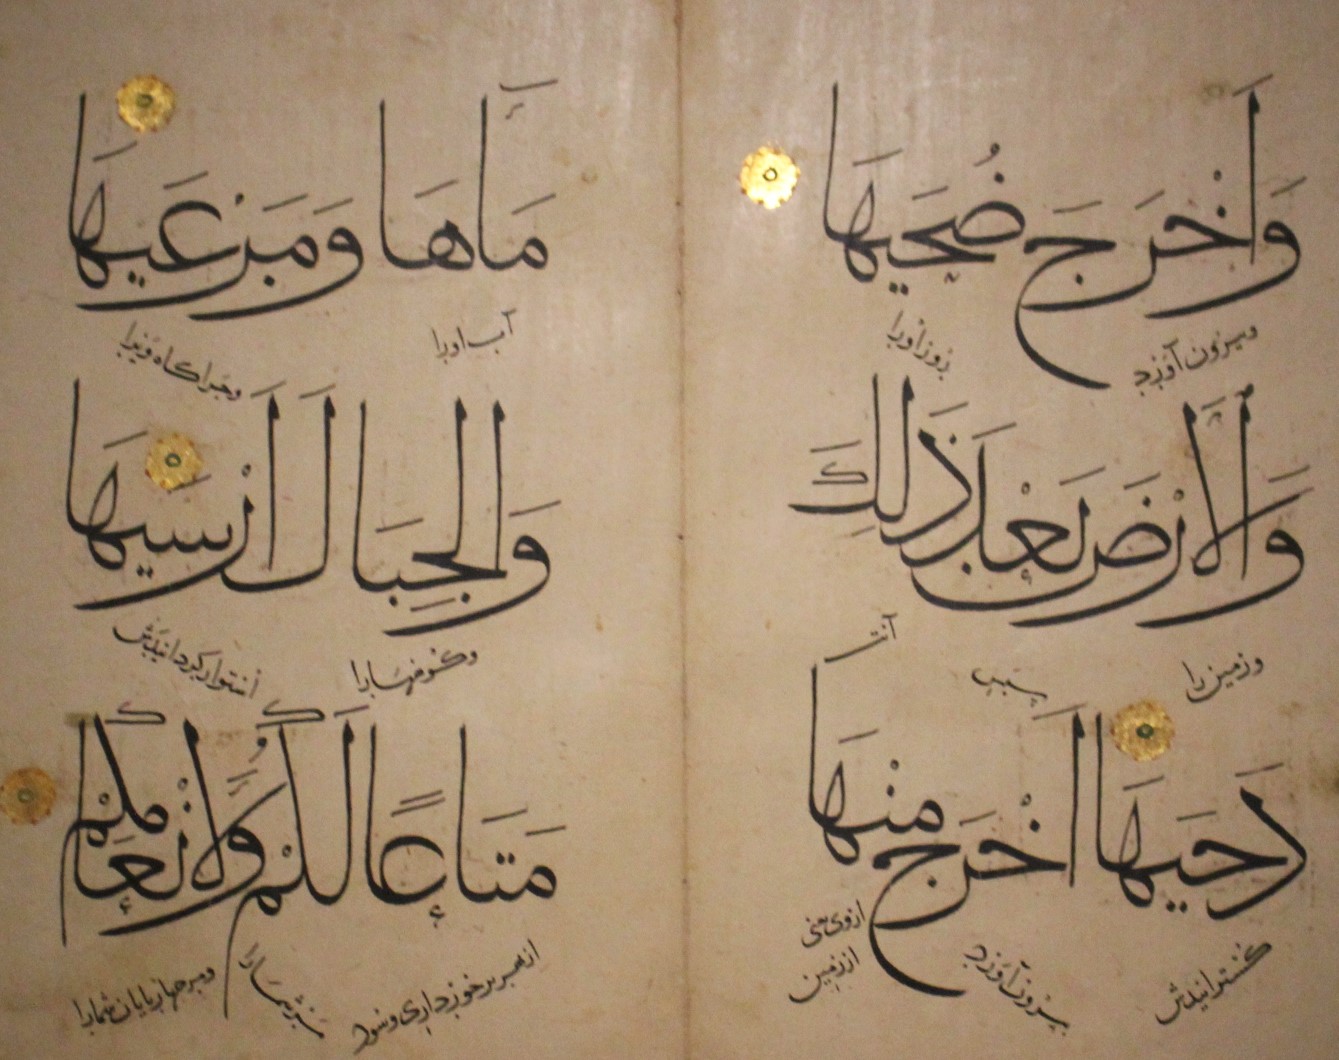 وَاَخْرَجَ ضُحَيهَا
وبیرون آوَرد روز او را
وَالْاَرْضَ بَعْدَ ذَلِكَ
و زمین را سپس آنـ
دَحَيهَا اَخْرَجَ مِنْهَا
گسترانیدش بیرون آوَرد ازوی یعنی از زمین
مَاَهَا وَمَرْعَيهَا
آب او را وجراکاه ویرا
وَالْجِبَالَ اَرْسَيهَا
وکوهها را استوار کردانیدش
مَتَاعًا لَكُمْ وَلِاَنْعَامِكُمْ
از بهر برخورداری وسود مر شما را ومر جهاربایان شما را